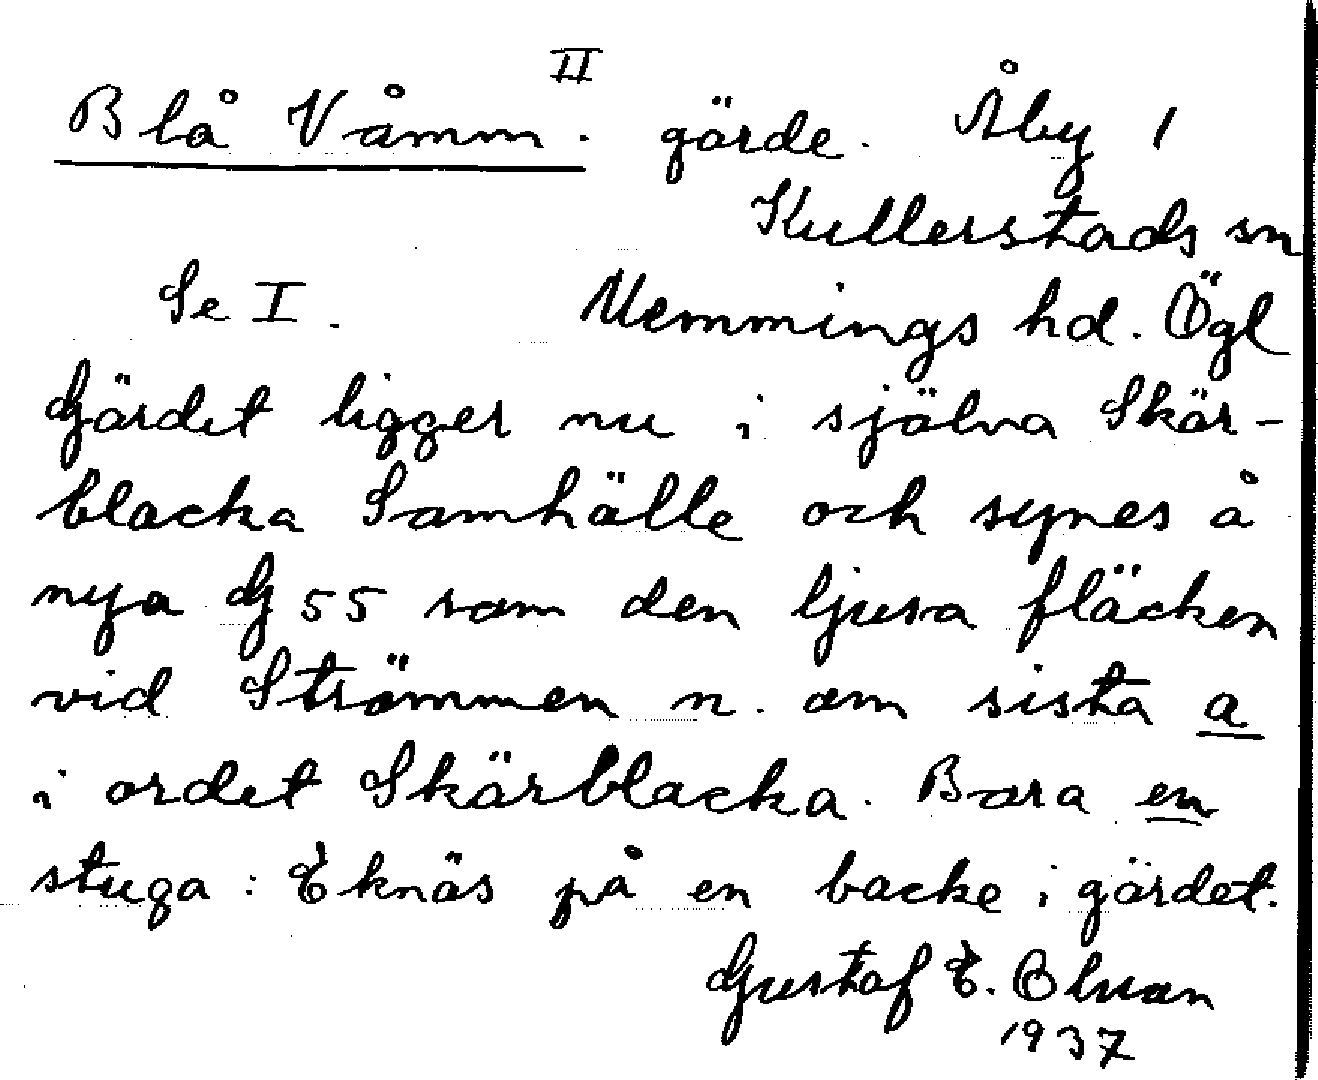 II
Blå Våmm. gärde. Åby 1
Kullerstads sn
Se I. Memmings hd. Ögl
Gärdet ligger nu i själva Skär-
blacka Samhälle och synes å
nya G 55 som den ljusa fläcken
vid Strömmen n. om sista a
i ordet Skärblacka. Bara en
stuga: Eknäs på en backe i gärdet.
Gustaf E. Olsson
1937